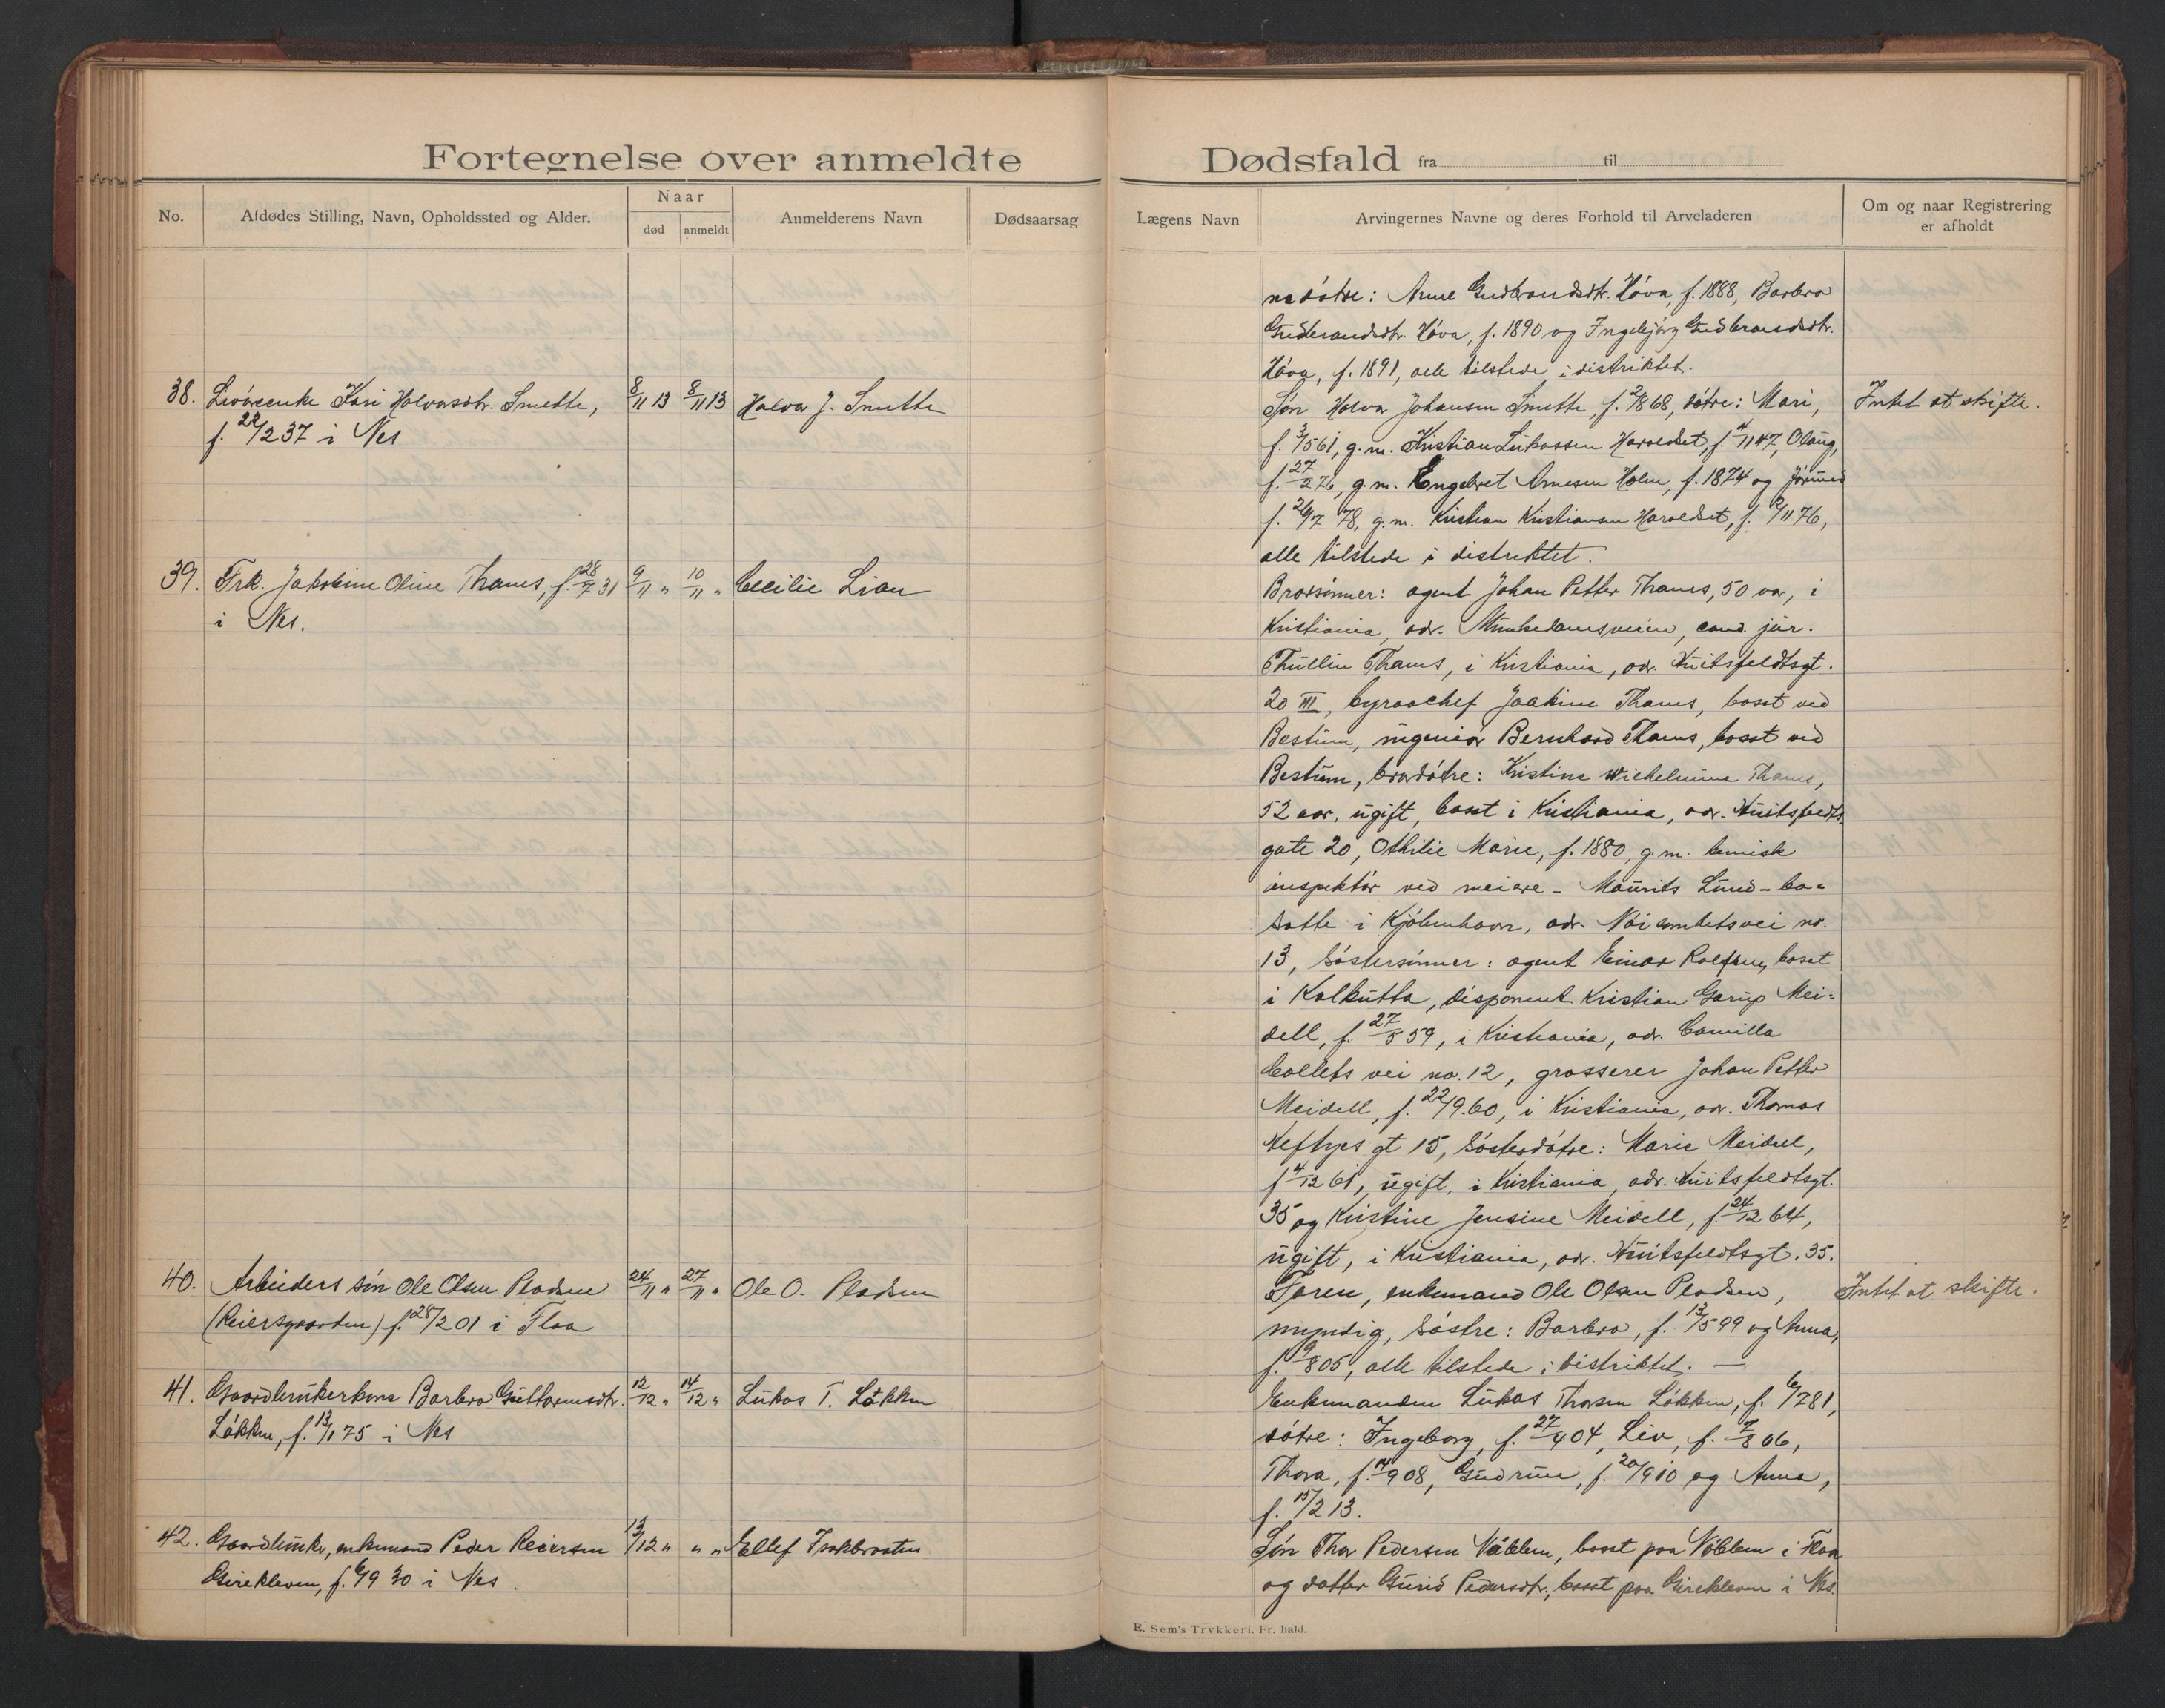 Fortegnelse over anmeldte
Dødsfald fra til
No.
Afdødes Stilling, Navn, Opholdssted og Alder.
Naar
død
anmeldt
Anmelderens Navn
Dødsaarsag
Lægens Navn
Arvingernes Navne og deres Forhold til Arveladeren
Om og naar Registrering
er afholdt
38. Kari Halvorsdtr. Smette, 8/11 13 8/11 13 Halvor J. Smette
f. 22/2 37 i Nes
39. Frk. Jakobine Oline Thams, f. 28/7 31 9/11 " 10/11 " Cecilie Lian
i Nes.
40. Arbeiders søn Ole Olsen Pladsen 24/11 " 27/11 " Ole O. Pladsen
(Reiersgaarden) f. 28/2 01 i Flaa
41. Gaardbrukerkone Barbro Guttormsdtr. 12/12 " 14/12 " Lukas T. Løkken
Løkken, f. 13/1 75 i Nes
42. Gaardbruker, enkemand Peder Reiersen 13/12 " " " Ellef
Girekleven, f. 6/9 30 i Nes.
døtre: Anne Gudbrandsdtr. Høva, f. 1888, Barbro
Gudbrandsdtr. Høva, f. 1890 og Ingebjørg Gudbrandsdtr.
Høva, f. 1891, alle tilstede i distriktet.
Søn Halvor Johansen Smette, f. 2/1 868, døtre: Mari,
f. 3/1 561, g.m. Kristian Lukassen Haraldset, f. 4/11 47, Olaug,
f. 27/2 76, g.m. Engebret Arnesen Holm, f. 1874 og Jørund
f. 26/7 78, g.m. Kristian Kristiansen Haraldset, f. 9/11 76,
alle tilstede i distriktet.
Intet at skifte.
Brorsønner: agent Johan Petter Thams, 50 aar, i
Kristiania, adr. Munkedamsveien, cand. jur.
Thullin Thams, i Kristiania, adr. Huitfeldtsgt.
20 III, byraachef Joakim Thams, bosat ved
Bestum, ingeniør Bernhard Thams, bosat ved
Bestum, brordøtre: Kristine Wilhelmine Thams,
52 aar, ugift, bosat i Kristiania, adr. Huitsfeldts-
gate 20, Othilie Marie, f. 1880, g.m. kemisk
inspektør ved meiere - Maurits Lund - bo=
satte i Kjøbenhavn, adr. vei no.
13, Søstersønner: agent Einar Rolfsen, bosat
i Kalkutta, disponent Kristian Garup Mei=
dell, f. 27/5 59, i Kristiania, adr. Camilla
Collets vei no. 12, grosserer Johan Petter
Meidell, f. 22/9 60, i Kristiania, adr. Thomas
Heftyes gt 15, Søsterdøtre: Marie Meidell,
f. 4/12 61, ugift, i Kristiania, adr. Huitsfeldtsgt.
35 og Kristine Jensine Meidell, f. 24/12 64,
ugift, i Kristiania, adr. Huitsfeldtsgt. 35.
Faren, enkemand Ole Olsen Pladsen,
myndig, Søstre: Barbro, f. 13/5 99 og Anna,
f. 9/8 05, alle tilstede i distriktet. —
Intet at skifte.
Enkemanden Lukas Thorsen Løkken, f. 6/7 81,
døtre: Ingeborg, f. 27/4 04, Liv, f. 7/8 06,
Thora, f. 14/9 08, Gudrun, f. 20/9 10 og Anna,
f. 15/2 13.
Søn Thor Pedersen Vøblen, bosat paa Vøblen i Flaa
og datter Gurid Pedersdtr., bosat paa Girekleven i Nes.
E. Sem's Trykkeri. Fr. hald.